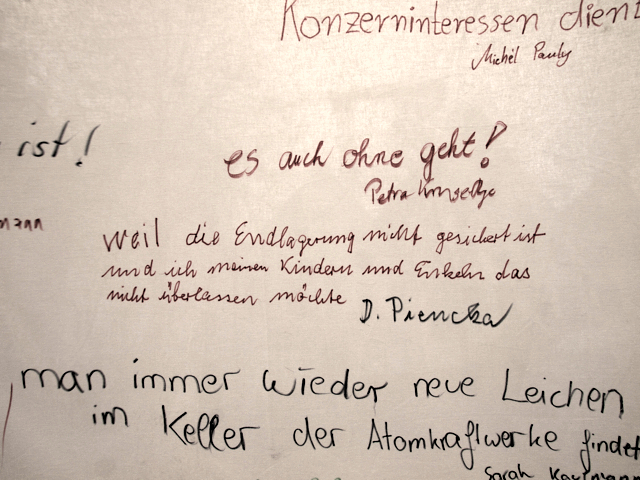 Konzerninteressen dient
Michél Pauly
ist!
es auch ohne geht!
Petra
mann
weil die Endlagerung nicht gesichert ist
und ich meinen Kindern und Enkeln das
nicht überlassen möchte
D. Piencka
man immer wieder neue Leichen
im Keller der Atomkraftwerke findet
Sarah Kaufmann